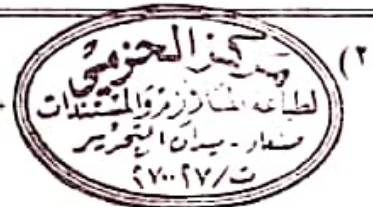 (٢
مركز الحزمي
لطباعة الملازم والمستندات
صنعاء - ميدان التحرير
ت/٢٧٠٠٢٧